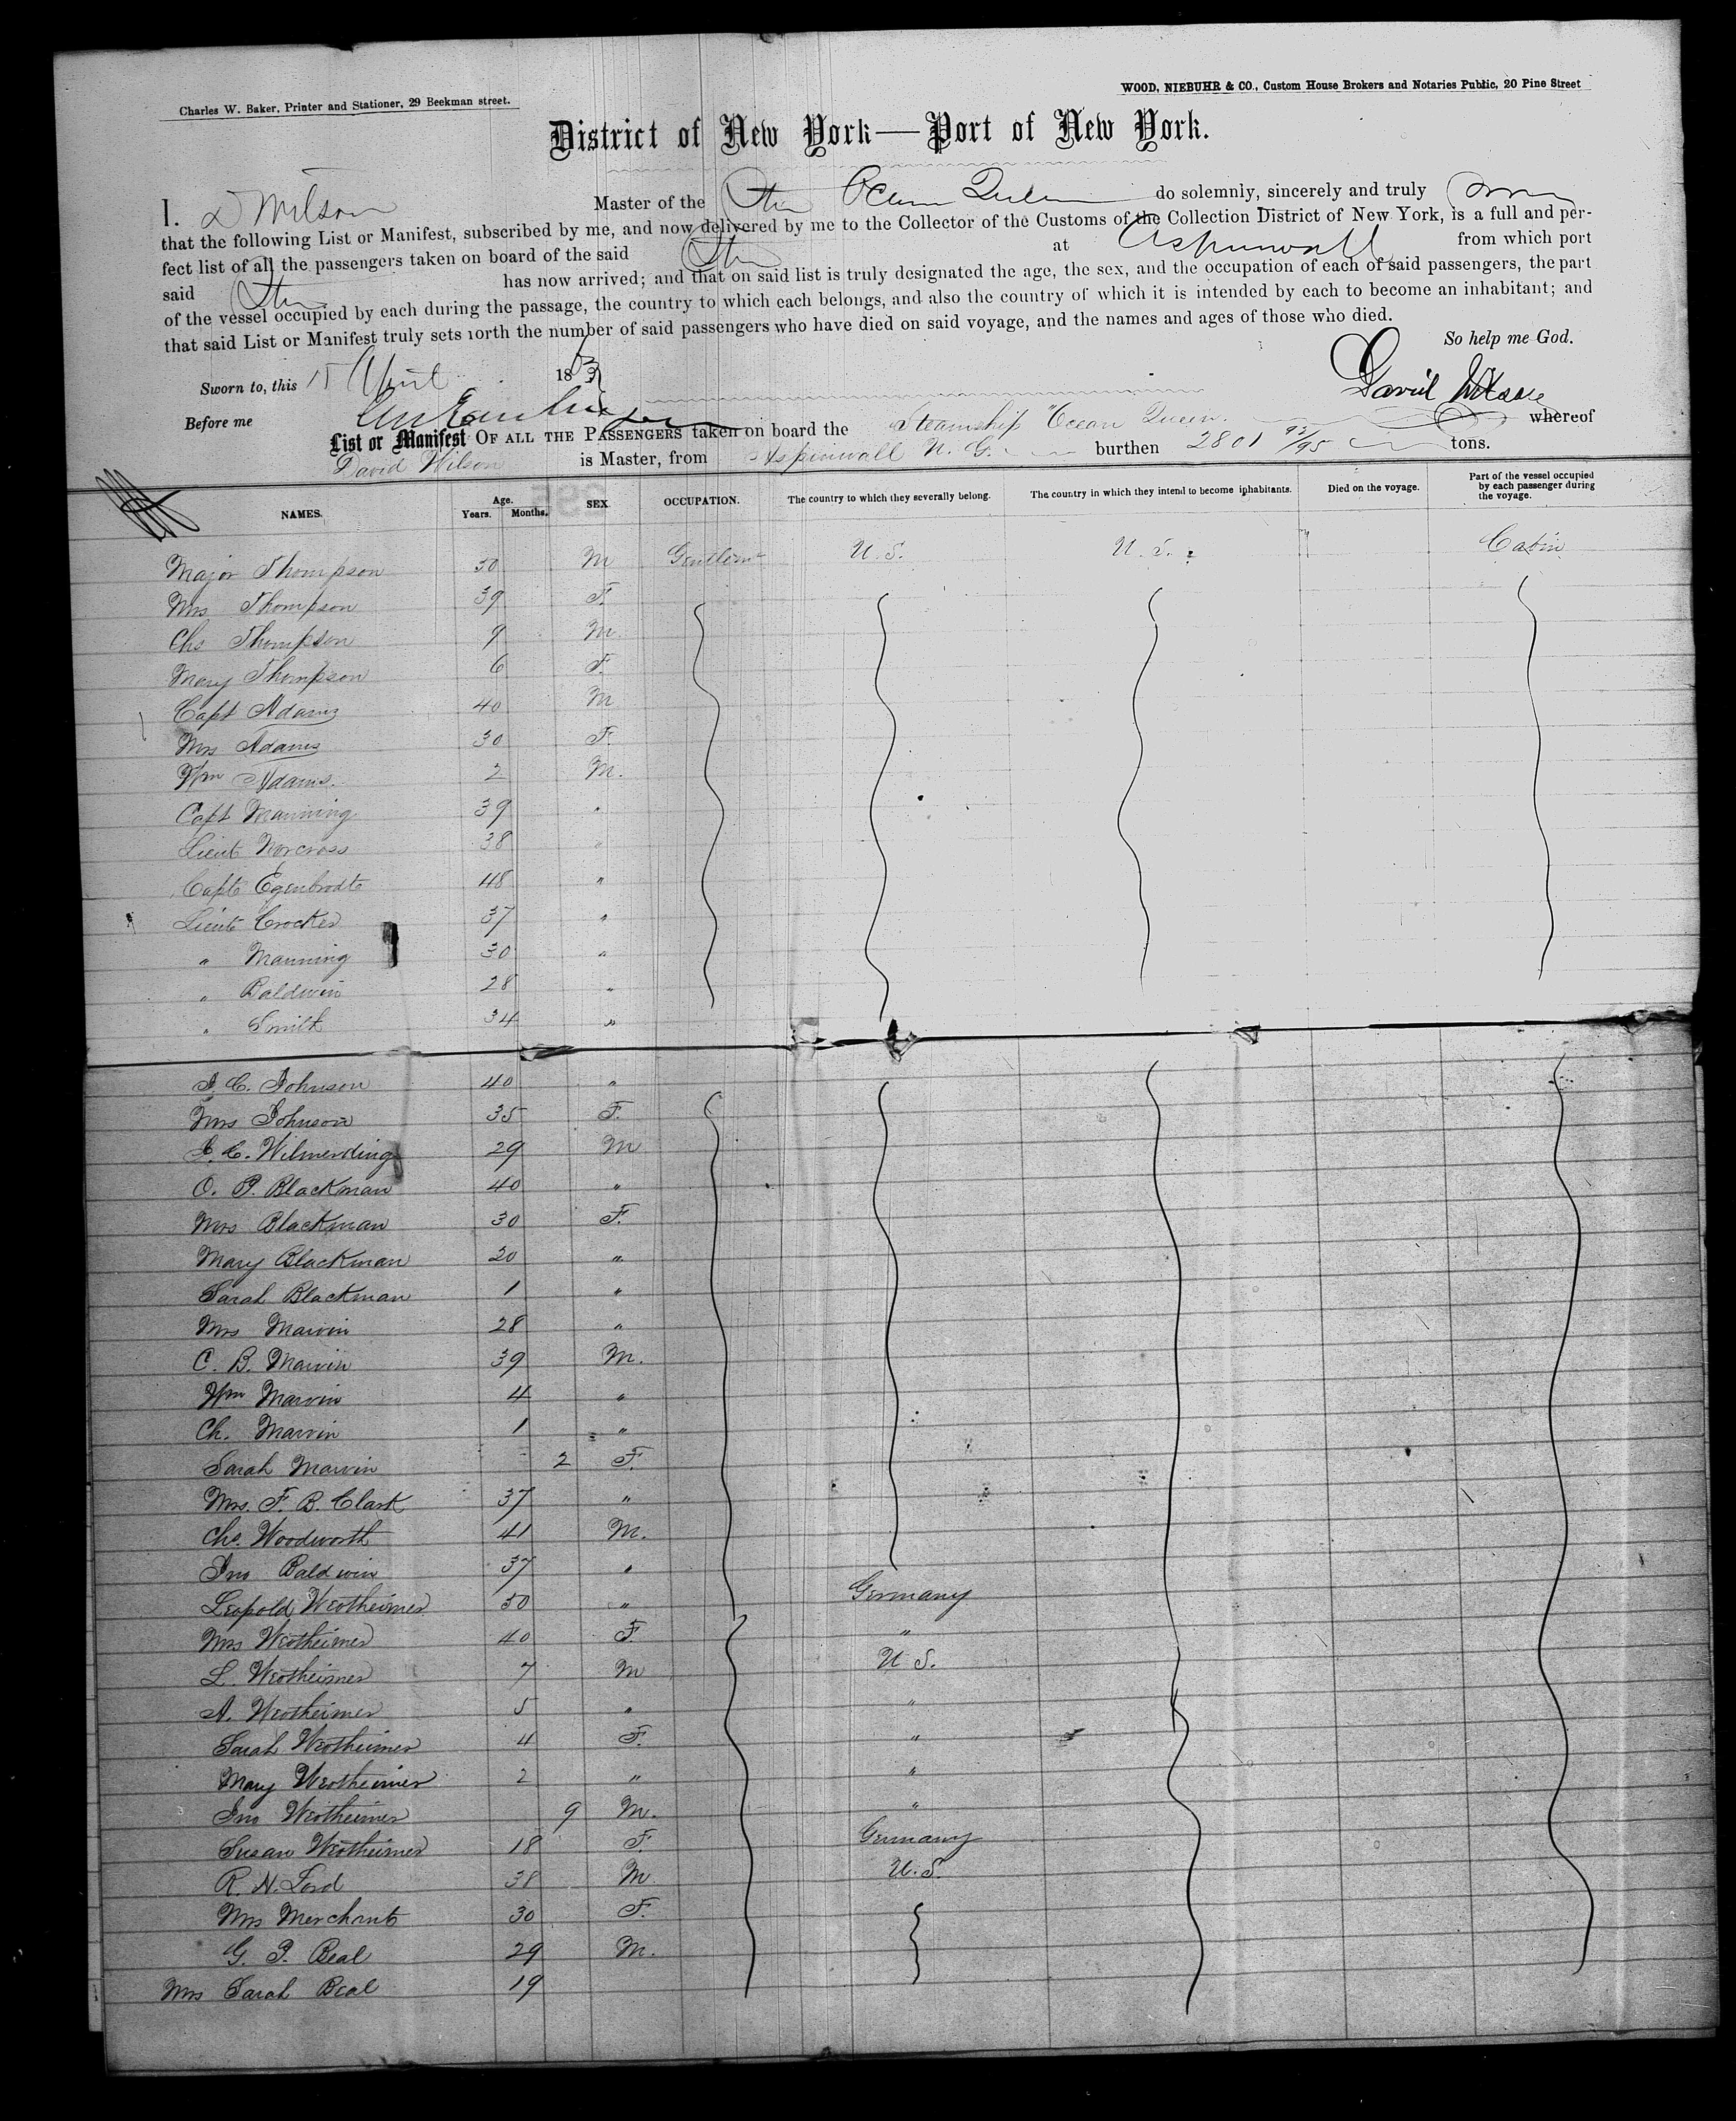 Charles W. Baker, Printer and Stationer, 29 Beekman street.
WOOD, NIEBUHR & CO., Custom House Brokers and Notaries Public, 20 Pine Street
District of New York—Port of New York.
I. D Wilson Master of the Str Ocean Queen do solemnly, sincerely and truly swear
that the following List or Manifest, subscribed by me, and now delivered by me to the Collector of the Customs of the Collection District of New York, is a full and per-
fect list of all the passengers taken on board of the said Str at Aspinwall from which port
said Str has now arrived; and that on said list is truly designated the age, the sex, and the occupation of each of said passengers, the part
of the vessel occupied by each during the passage, the country to which each belongs, and also the country of which it is intended by each to become an inhabitant; and
that said List or Manifest truly sets forth the number of said passengers who have died on said voyage, and the names and ages of those who died.
So help me God.
Sworn to, this 15 April 1863
David Wilson
Before me
List or Manifest OF ALL THE PASSENGERS taken on board the Steamship "Ocean Queen. whereof
David Wilson is Master, from Aspinwall N. G. burthen 2801 93/95 tons.
NAMES. Age. Years. Months. SEX. OCCUPATION. The country to which they severally belong. The country in which they intend to become inhabitants. Died on the voyage. Part of the vessel occupied by each passenger during the voyage.
Major Thompson 50 M Gentlemn U.S. U.S. Cabin
Mrs Thompson 39 F.
Chs Thompson 9 M.
Mary Thompson 6 F.
Capt Adams 40 M
Mrs Adams 30 F.
Wm Adams. 2 M.
Capt Manning 39 "
Lieut Norcross 38 "
Capt Egenbrodt 48 "
Lieut Crocker 37 "
" Manning 30 "
" Baldwin 28 "
" Smith 34 "
J. C. Johnson 40 "
Mrs Johnson 35 F.
J. C. Wilmerding 29 M
O. P. Blackman 40 "
Mrs Blackman 30 F.
Mary Blackman 20 "
Sarah Blackman 1 "
Mrs Marvin 28 "
C. B. Marvin 39 M.
Wm Marvin 4 "
Ch. Marvin 1 "
Sarah Marvin 2 F.
Mrs. F. B. Clark 37 "
Chs. Woodworth 41 M.
Jno Baldwin 37 "
Leopold Wertheimer 50 " Germany
Mrs Wertheimer 40 F. "
L. Wertheimer 7 M U S.
A. Wertheimer 5 " "
Sarah Wertheimer 4 F. "
Mary Wertheimer 2 " "
Jno Wertheimer 9 M. "
Susan Wertheimer 18 F. Germany
R. N. Lord 38 M U.S.
Mrs Merchant 30 F.
G. P. Beal 29 M.
Mrs Sarah Beal 19